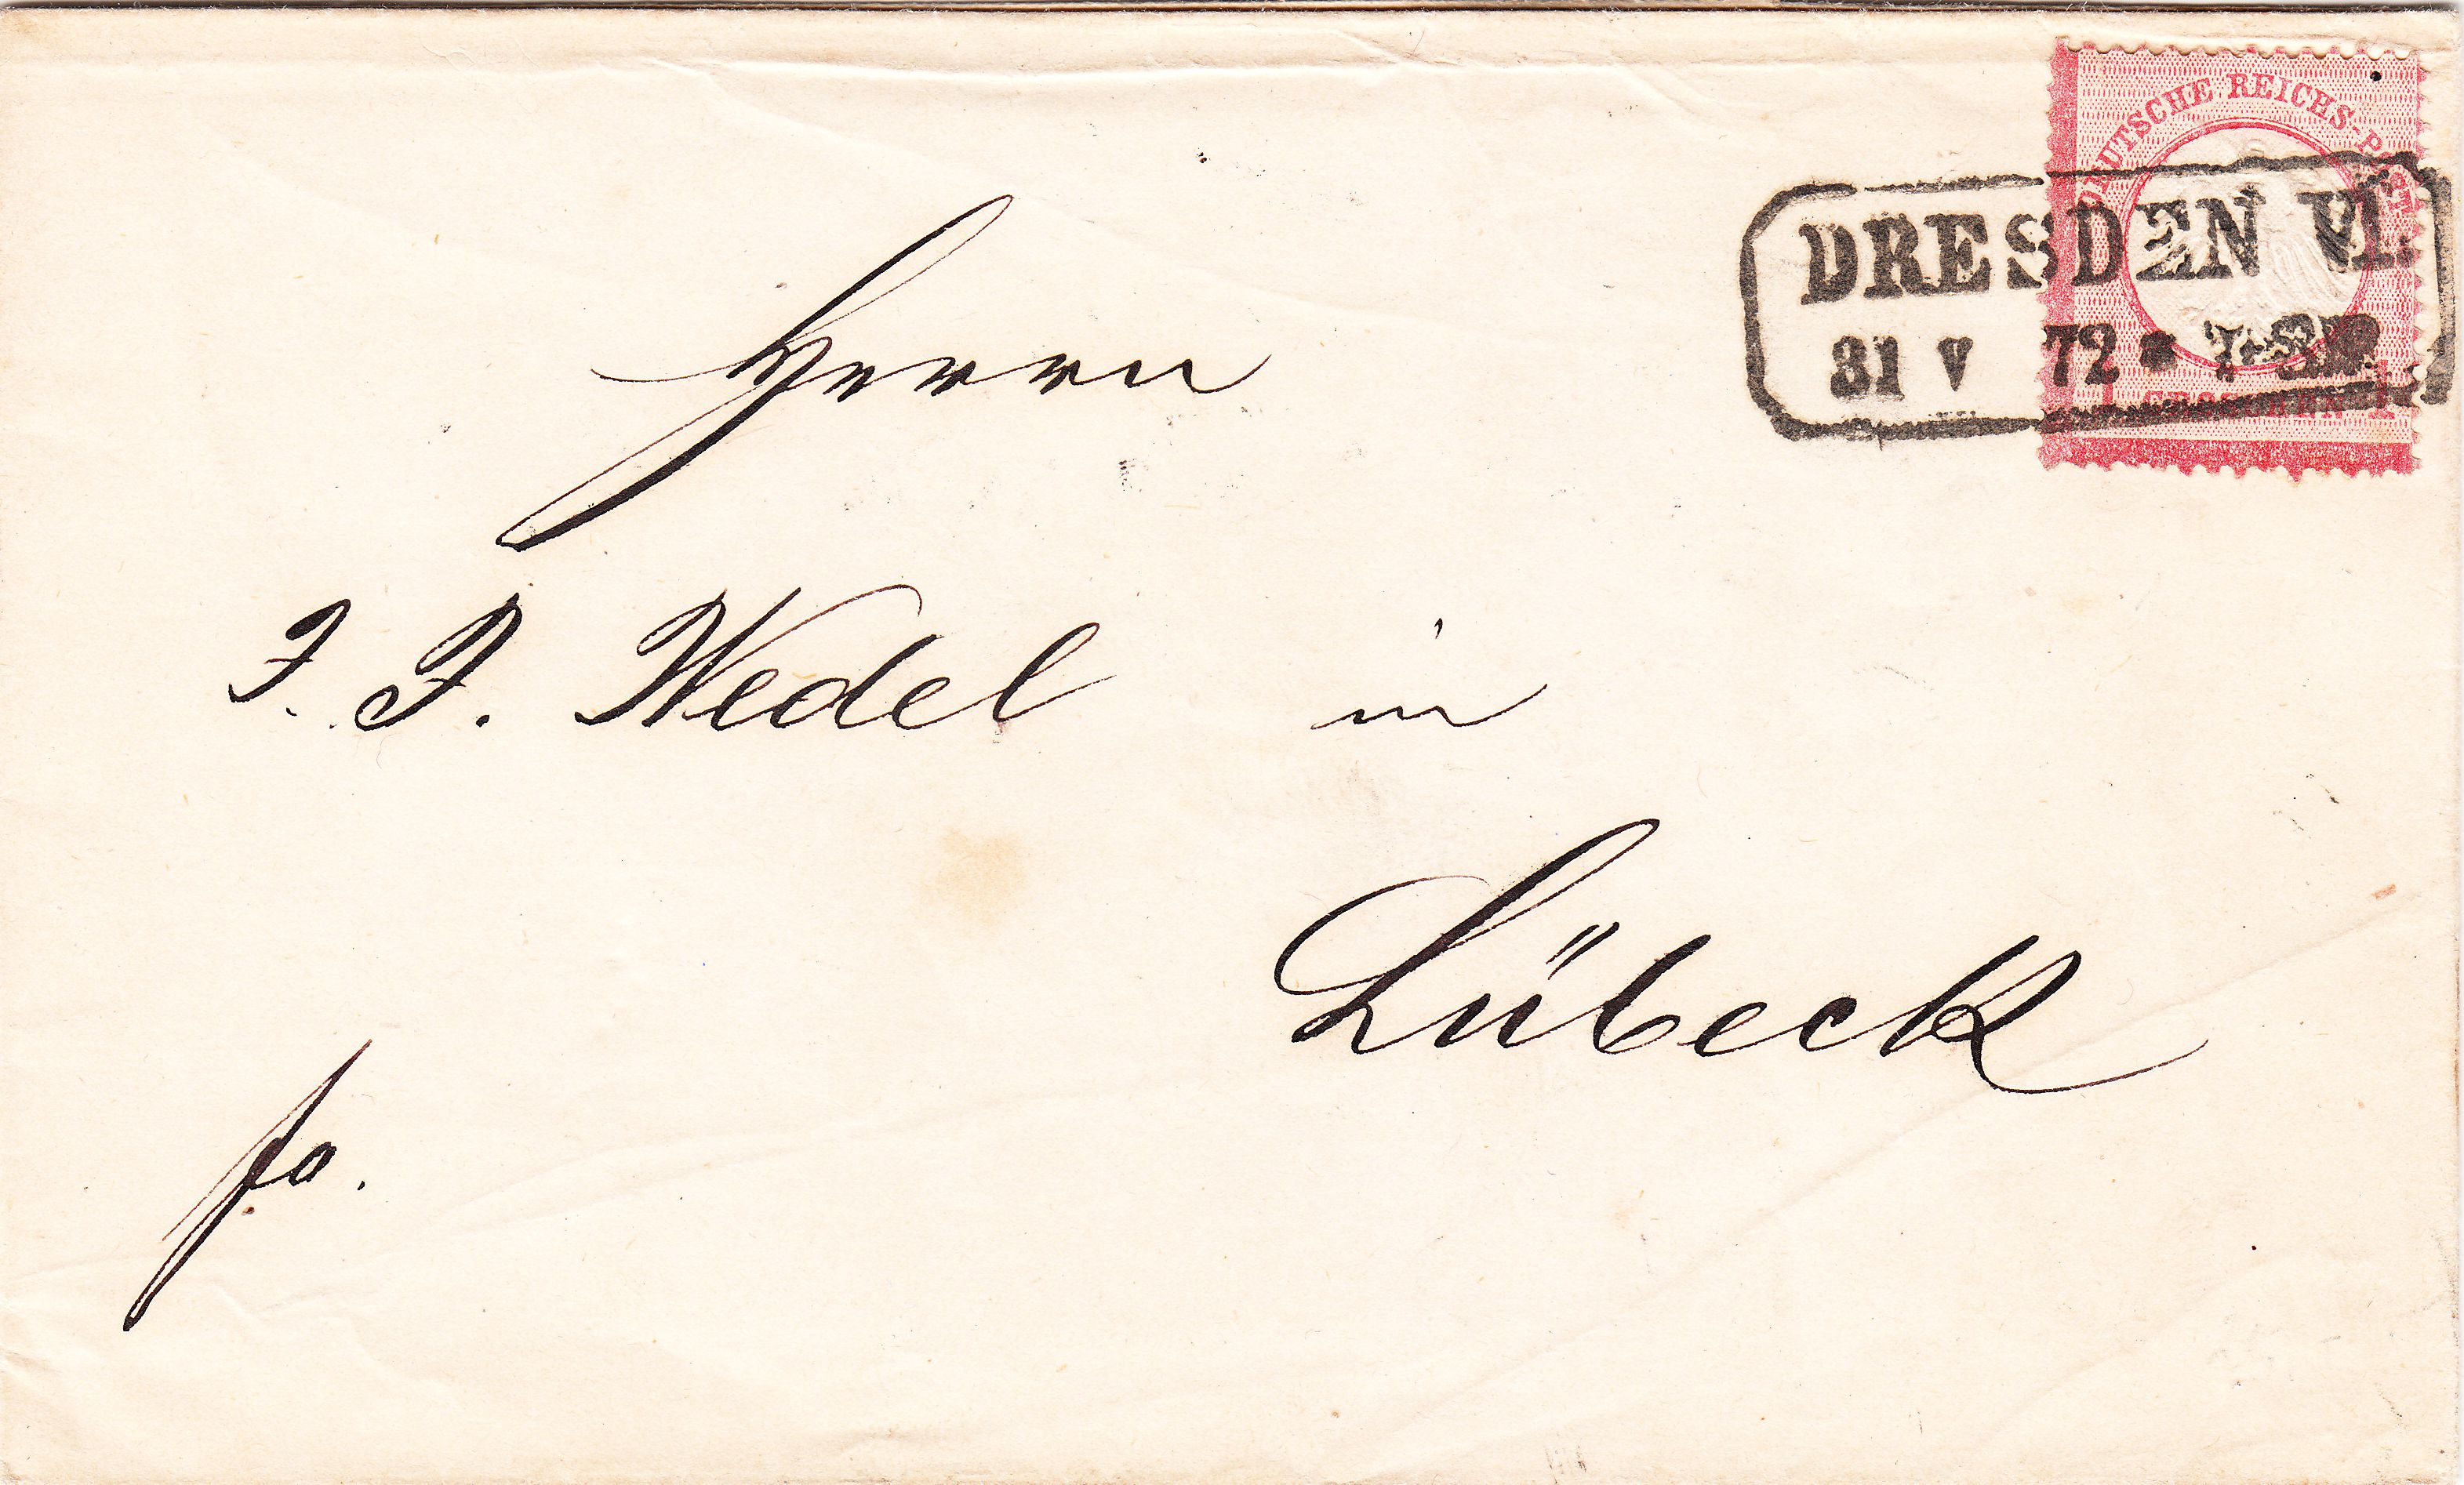 DEUTSCHE REICHS-POST
DRESDEN VI.
31 V 72
Herrn
J. P. Wedel in
Lübeck
fo.